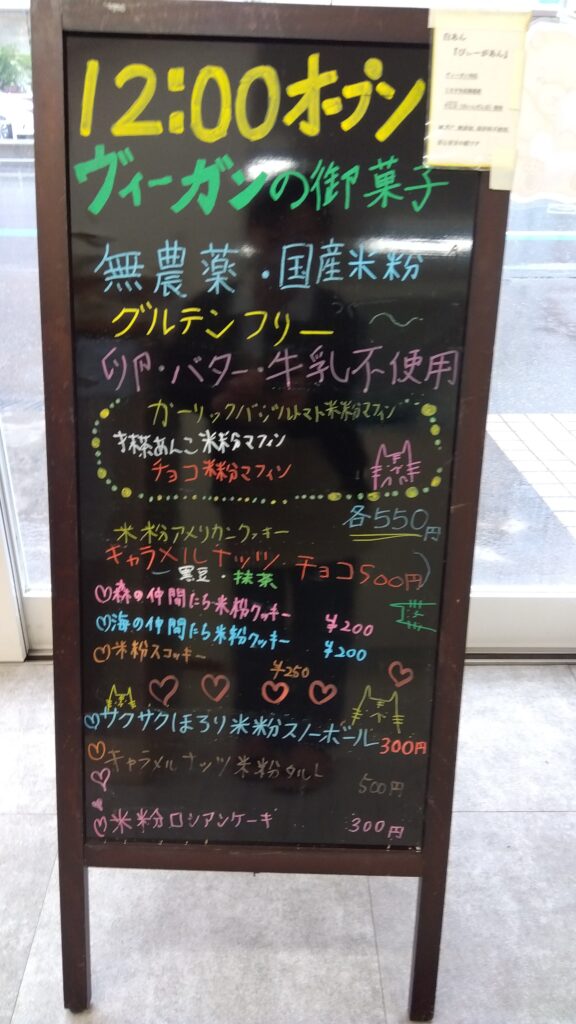 12:00オープン
ヴィーガンの御菓子
無農薬・国産米粉
グルテンフリー
卵・バター・牛乳不使用
ガーリックバジルトマト米粉マフィン
抹茶あんこ米粉マフィン
チョコ米粉マフィン
各550円
米粉アメリカンクッキー
キャラメルナッツ チョコ500円
黒豆・抹茶
森の仲間たち米粉クッキー ¥200
海の仲間たち米粉クッキー ¥200
米粉スコッキー ¥250
サクサクほろり米粉スノーボール 300円
キャラメルナッツ米粉タルト 500円
米粉ロシアンケーキ 300円
白あん
「びぃーがあん」